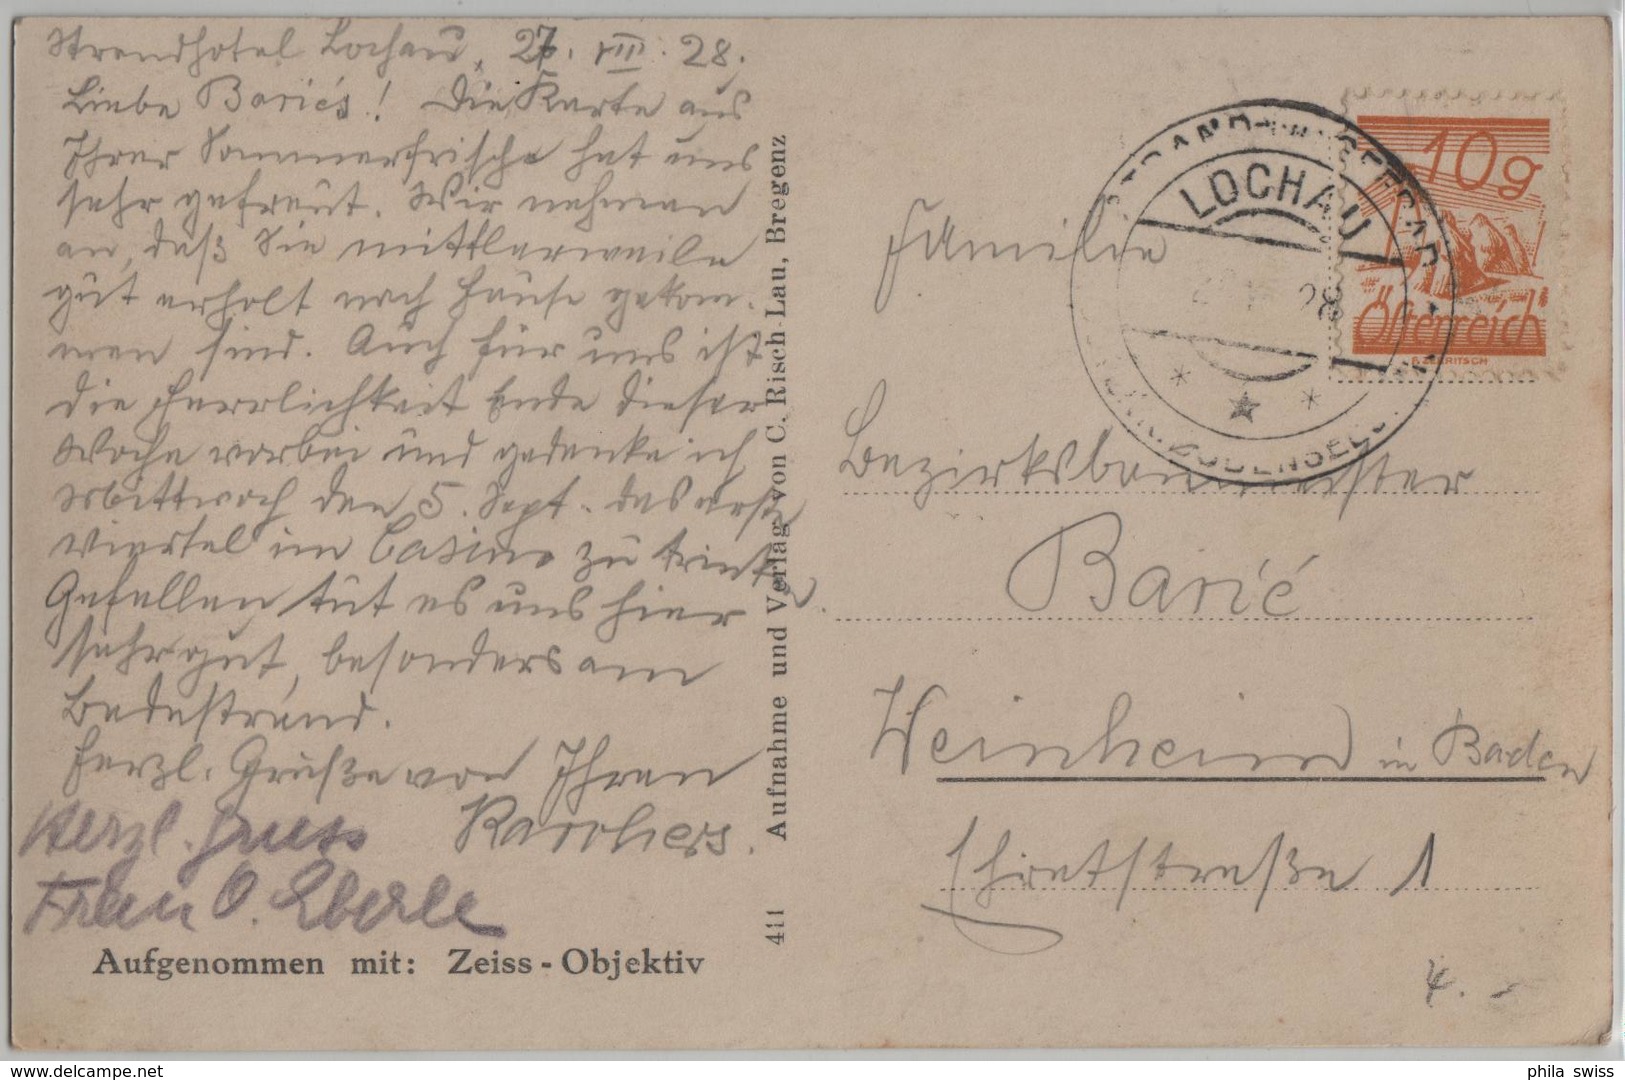 Strandhotel Lochau, 27. VIII. 28.
Liebe Barićs! Die Karte aus
Ihrer Sommerfrische hat uns
sehr gefreut. Wir nehmen
an, daß Sie mittlerweile
gut erholt nach Hause gekom-
men sind. Auch für uns ist
die Herrlichkeit Ende dieser
Woche vorbei und gedenke ich
Mittwoch den 5. Sept. das erste
Viertel im Casino zu trinken.
Gefallen tut es uns hier
sehr gut, besonders am
Badestrand.
Herzl. Grüße von Ihren
Karchers.
Herzl. Gruss
Frau O. Eberle
Aufgenommen mit: Zeiss-Objektiv
411 Aufnahme und Verlag von C. Risch-Lau, Bregenz
10g
Österreich
LOCHAU
28
Familie
Bezirksbaumeister
Barić
Weinheim in Baden
Ehretstraße 1
4.-
phila swiss